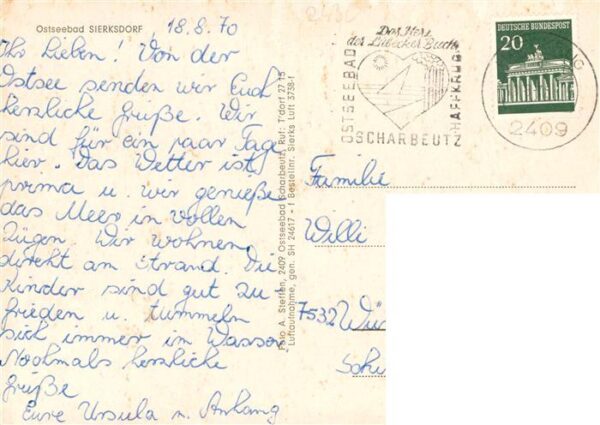 Ostseebad SIERKSDORF
18.8.70
Ihr Lieben! Von der
Ostsee senden wir Euch
herzliche Grüße. Wir
sind für ein paar Tage
hier. Das Wetter ist
prima u. wir genieße
das Meer in vollen
Zügen. Wir wohnen
direkt am Strand. Die
Kinder sind gut zu
frieden u. tummeln
sich immer im Wasser
Nochmals herzliche
Grüße
Eure Ursula n. Anhang
Foto A. Steffen, 2409 Ostseebad Scharbeutz, Ruf: T'dorf 27 15
Luftaufnahme, gen. SH 24617-1 Bestellnr. Sierks Luft 3738-1
Das Herz
der Lübecker Bucht
OSTSEEBAD
SCHARBEUTZ
HAFFKRUG
DEUTSCHE BUNDESPOST
20
2409
Familie
Willi
7532